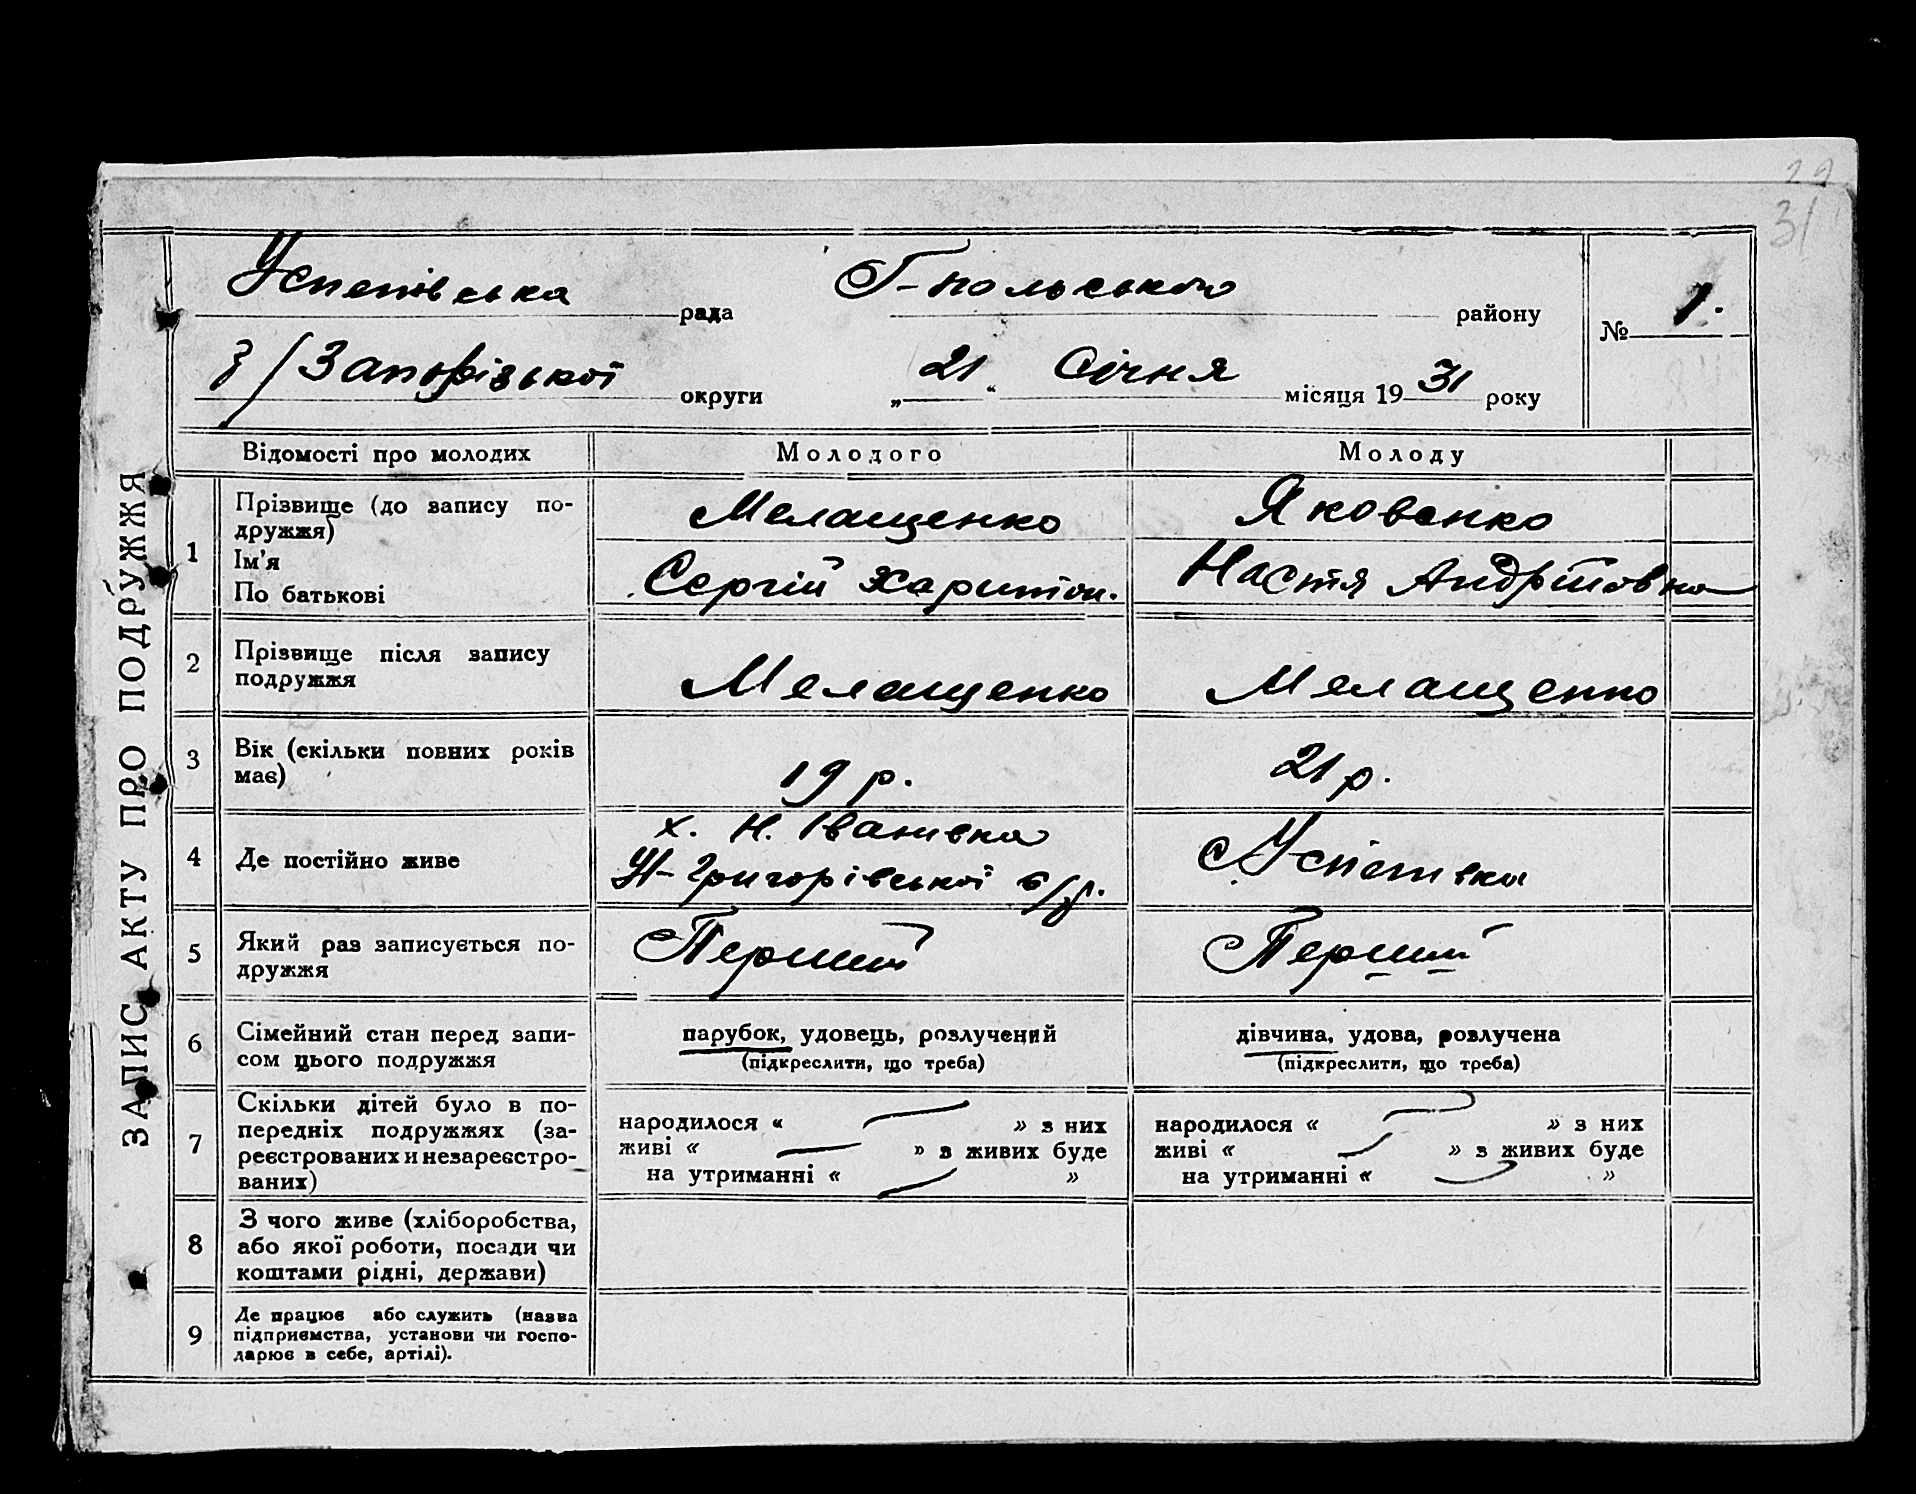 29
31
Успенівська рада Г-польського району № 1.
з/Запорізької округи „21“ Січня місяця 1931 року
ЗАПИС АКТУ ПРО ПОДРУЖЖЯ
Відомості про молодих Молодого Молоду
1 Прізвище (до запису по-
дружжя) Мелащенко Яковенко
Ім'я
По батькові Сергій Харитон. Настя Андрійовна
2 Прізвище після запису
подружжя Мелащенко Мелащенко
3 Вік (скільки повних років
має) 19 р. 21 р.
4 Де постійно живе х. Н. Іванивка Успенивка
-Григорівської с/р.
5 Який раз записується по-
дружжя Перший Перший
6 Сімейний стан перед запи-
сом цього подружжя парубок, удовець, розлучений дівчина, удова, розлучена
(підкреслити, що треба) (підкреслити, що треба)
7 Скільки дітей було в по-
передніх подружжях (за-
реєстрованих и незареєстро-
ваних)
народилося « — » з них народилося « — » з них
живі « — » з живих буде живі « — » з живих буде
на утриманні « — » на утриманні « — »
8 З чого живе (хліборобства,
або якої роботи, посади чи
коштами рідні, держави)
9 Де працює або служить (назва
підприємства, установи чи госпо-
дарює в себе, артілі).